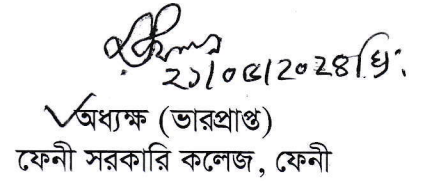 ২১/০৫/২০২৪ খ্রি:
অধ্যক্ষ (ভারপ্রাপ্ত)
ফেনী সরকারি কলেজ, ফেনী